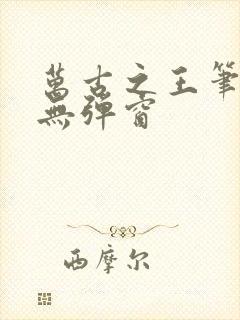 萬古之王筆
無彈窗
西摩尔